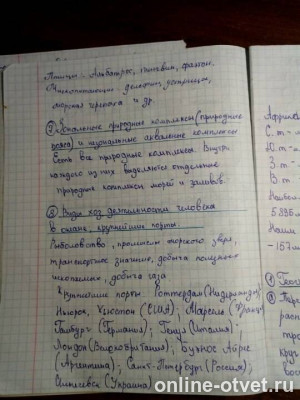 Птицы - Альбатрос, пингвин, фаэтон.
Млекопитающие дельфин,
морская черепаха и др.
⑦ Зональные природные комплексы (природные
пояса) и аквальные комплексы
Есть все природные комплексы. Внутри
каждого из них выделяются отдельные
природные комплексы морей и заливов.
⑧ Виды хоз. деятельности человека
в океане, крупнейшие порты
Рыболовство, промысел морского зверя,
транспортное значение, добыча полезных
ископаемых, добыча газа
Крупнейшие порты Роттердам (Нидерланды)
Ньюйорк, Хьюстон (США), Марсель
Гамбург (Германия), Генуя (Италия),
Лондон (Великобритания), Буэнос Айрес
(Аргентина), Санкт-Петербург (Россия)
(Украина)
Африка
С. т -
Ю. т -
З. т -
В. т -
5895
Наим
-157
①
②
online-otvet.ru